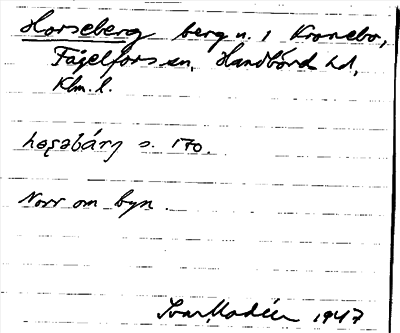 Horseberg berg n. i Kronebo,
Fågelfors sn, Handbörd hd,
Klm. l.
hɷşəbárj s. 170.
Norr om byn.
Ivar Modéer 1947